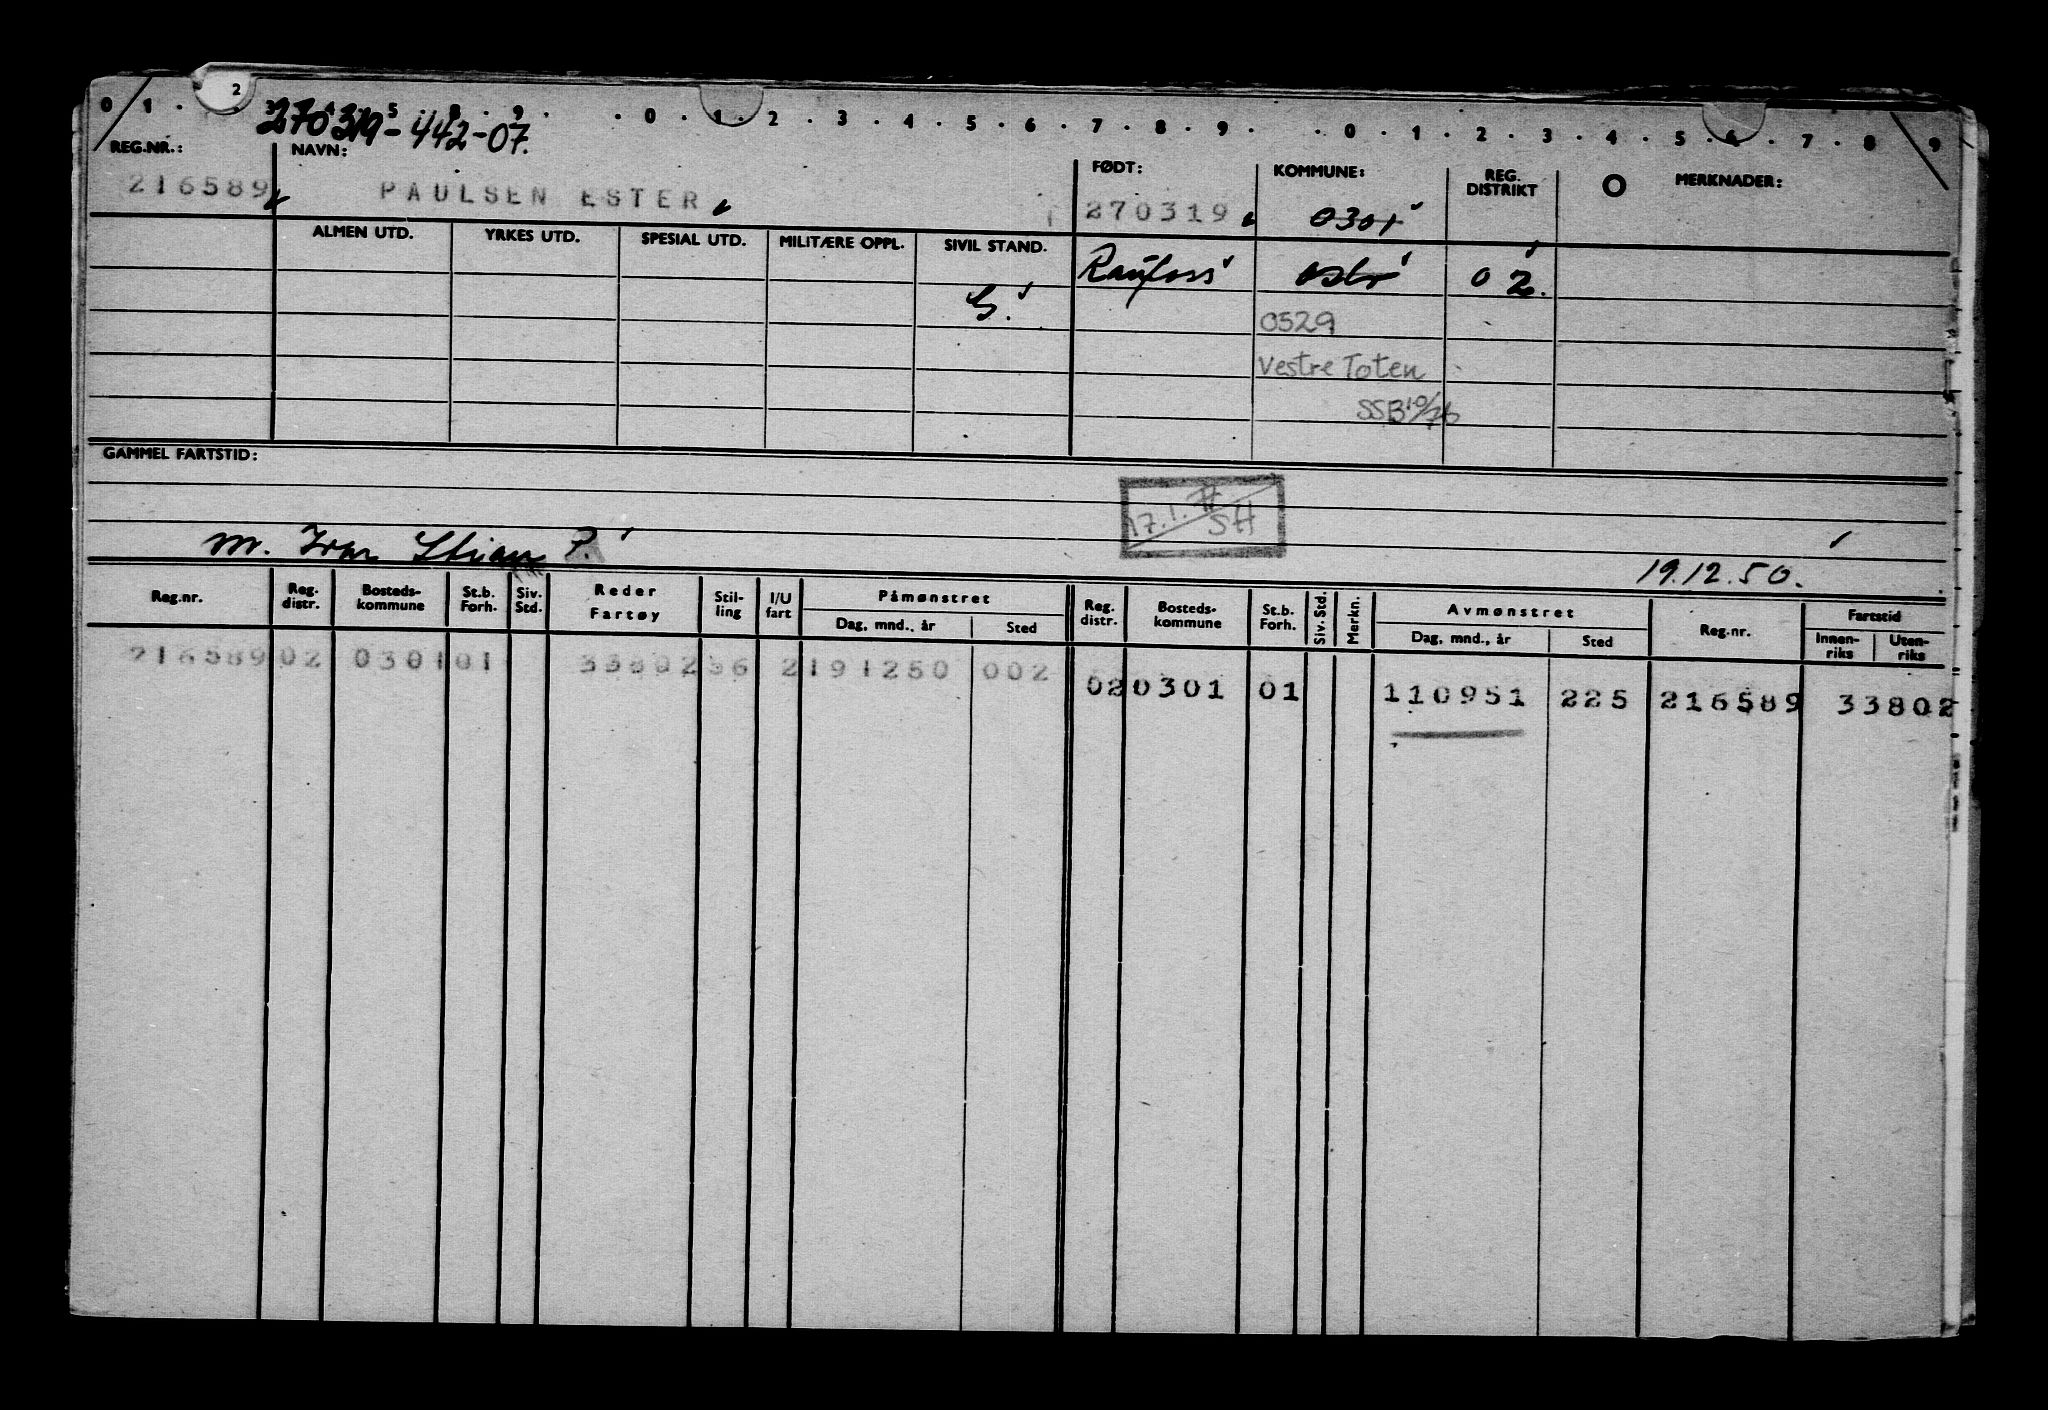 0 1 · 2 · 3 · 4 · 5 · 8 · 9 · · 0 · 1 · 2 · 3 · 4 · 5 · 6 · 7 · 8 · 9 · · 0 · 1 · 2 · 3 · 4 · 5 · 6 · 7 · 8 · 9
270319-442-07.
REG.NR.: NAVN: FØDT: KOMMUNE: REG. DISTRIKT O MERKNADER:
216589 PAULSEN ESTER 270319 0301
ALMEN UTD. YRKES UTD. SPESIAL UTD. MILITÆRE OPPL. SIVIL STAND.
Raufoss Oslo 02.
G.
0529
Vestre Toten
SSB 10/76
GAMMEL FARTSTID:
17.1. SH
m. Ivar Stian P.
19.12.50.
Reg.nr. Reg. distr. Bosteds-kommune St.b. Forh. Siv. Std. Reder Fartøy Stil-ling I/U fart Påmønstret Reg. distr. Bosteds-kommune St.b. Forh. Siv. Std. Merkn. Avmønstret Reg.nr. Fartstid
Dag, mnd., år Sted Dag, mnd., år Sted Innen-riks Uten-riks
216589 02 0301 01 33802 36 2 191250 002
02 0301 01 110951 225 216589 33802